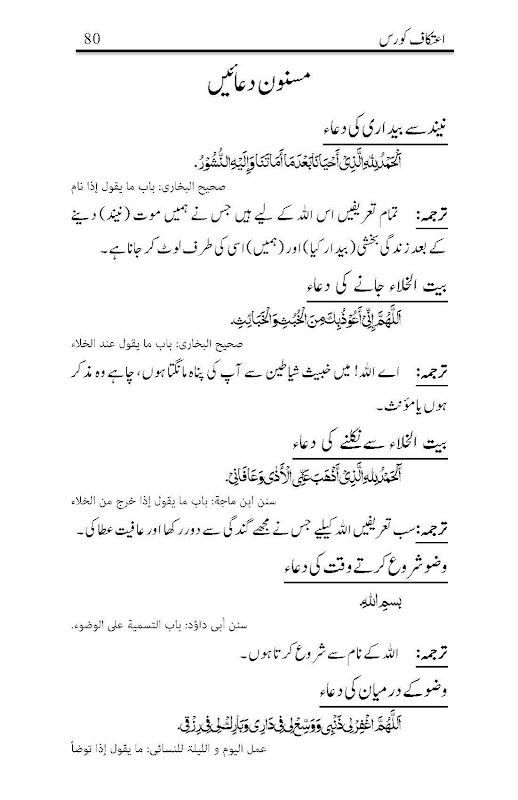 80 اعتکاف کورس
مسنون دعائیں
نیند سے بیداری کی دعاء
اَلْحَمْدُ لِلّٰهِ الَّذِیْ أَحْیَانَا بَعْدَ مَا أَمَاتَنَا وَإِلَیْهِ النُّشُوْرُ.
صحیح البخاری: باب ما یقول إذا نام
ترجمہ: تمام تعریفیں اس اللہ کے لیے ہیں جس نے ہمیں موت (نیند) دینے
کے بعد زندگی بخشی (بیدار کیا) اور (ہمیں) اسی کی طرف لوٹ کر جانا ہے۔
بیت الخلاء جانے کی دعاء
اَللّٰهُمَّ إِنِّیْ أَعُوْذُ بِكَ مِنَ الْخُبُثِ وَالْخَبَائِثِ.
صحیح البخاری: باب ما یقول عند الخلاء
ترجمہ: اے اللہ! میں خبیث شیاطین سے آپ کی پناہ مانگتا ہوں، چاہے وہ مذکر
ہوں یا مؤنث۔
بیت الخلاء سے نکلنے کی دعاء
اَلْحَمْدُ لِلّٰهِ الَّذِیْ أَذْهَبَ عَنِّی الْأَذٰی وَعَافَانِیْ.
سنن ابن ماجة: باب ما یقول إذا خرج من الخلاء
ترجمہ: سب تعریفیں اللہ کیلیے جس نے مجھے گندگی سے دور رکھا اور عافیت عطا کی۔
وضو شروع کرتے وقت کی دعاء
بِسمِ اللهِ.
سنن أبی داؤد: باب التسمیة علی الوضوء.
ترجمہ: اللہ کے نام سے شروع کرتا ہوں۔
وضو کے درمیان کی دعاء
اَللّٰهُمَّ اغْفِرْ لِیْ ذَنْبِیْ وَوَسِّعْ لِیْ فِیْ دَارِیْ وَبَارِكْ لِیْ فِیْ رِزْقِیْ.
عمل الیوم و اللیلة للنسائی: ما یقول إذا توضأ